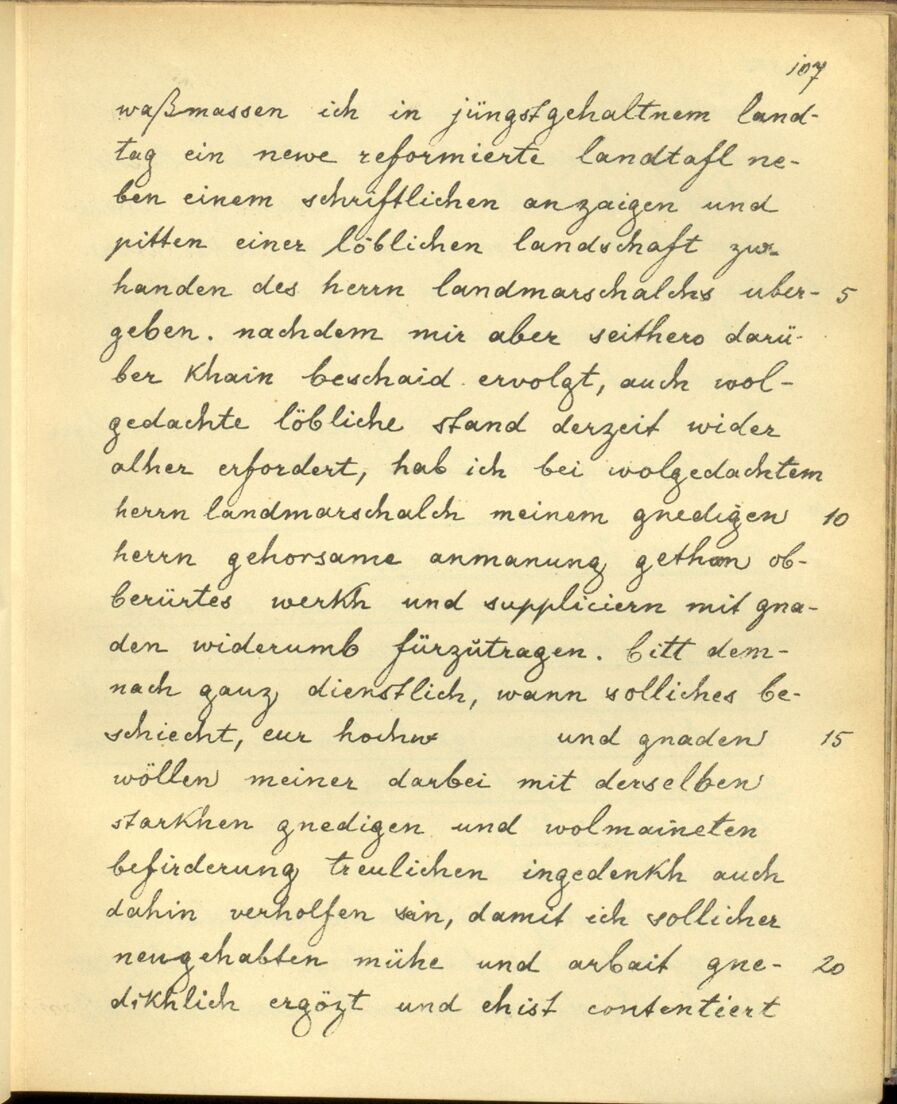 107
waßmassen ich in jüngstgehaltnem land-
tag ein newe reformierte landtafl ne-
ben einem schriftlichen anzaigen und
pitten einer löblichen landschaft zw-
handen des herrn landmarschalchs uber- 5
geben. nachdem mir aber seithero darü-
ber Khain beschaid ervolgt, auch wol-
gedachte löbliche stand derzeit wider
alher erfordert, hab ich bei wolgedachtem
herrn landmarschalch meinem gnedigen 10
herrn gehorsame anmanung gethon ob-
berürtes werkh und suppliciern mit gna-
den widerumb fürzŭtragen. bitt dem-
nach ganz dienstlich, wann solliches be-
schiecht, eur hochw und gnaden 15
wöllen meiner darbei mit derselben
starkhen gnedigen und wolmaineten
befirderung treulichen ingedenkh auch
dahin verholfen sein, damit ich sollicher
neugehabten mühe und arbait gne- 20
dikhlich ergözt und ehist contentiert